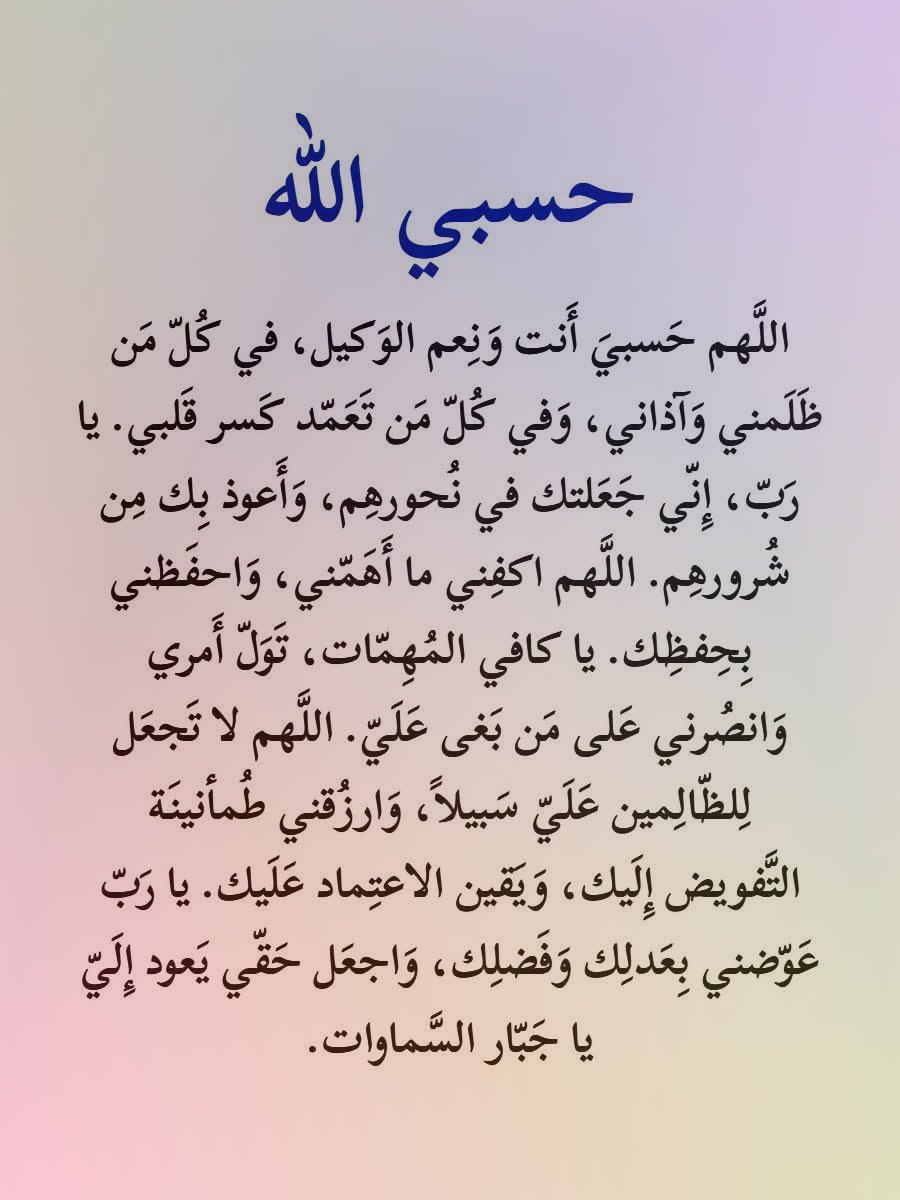 حسبي الله
اللَّهم حَسبيَ أَنت وَنِعم الوَكيل، في كُلّ مَن
ظَلَمني وَآذاني، وَفي كُلّ مَن تَعَمّد كَسر قَلبي. يا
رَبّ، إِنّي جَعَلتك في نُحورهِم، وَأَعوذ بِك مِن
شُرورهِم. اللَّهم اكفِني ما أَهَمّني، وَاحفَظني
بِحِفظِك. يا كافي المُهِمّات، تَوَلّ أَمري
وَانصُرني عَلى مَن بَغى عَلَيّ. اللَّهم لا تَجعَل
لِلظّالِمين عَلَيّ سَبيلاً، وَارزُقني طُمأنينَة
التَّفويض إِلَيك، وَيَقين الاعتِماد عَلَيك. يا رَبّ
عَوّضني بِعَدلِك وَفَضلِك، وَاجعَل حَقّي يَعود إِلَيّ
يا جَبّار السَّماوات.